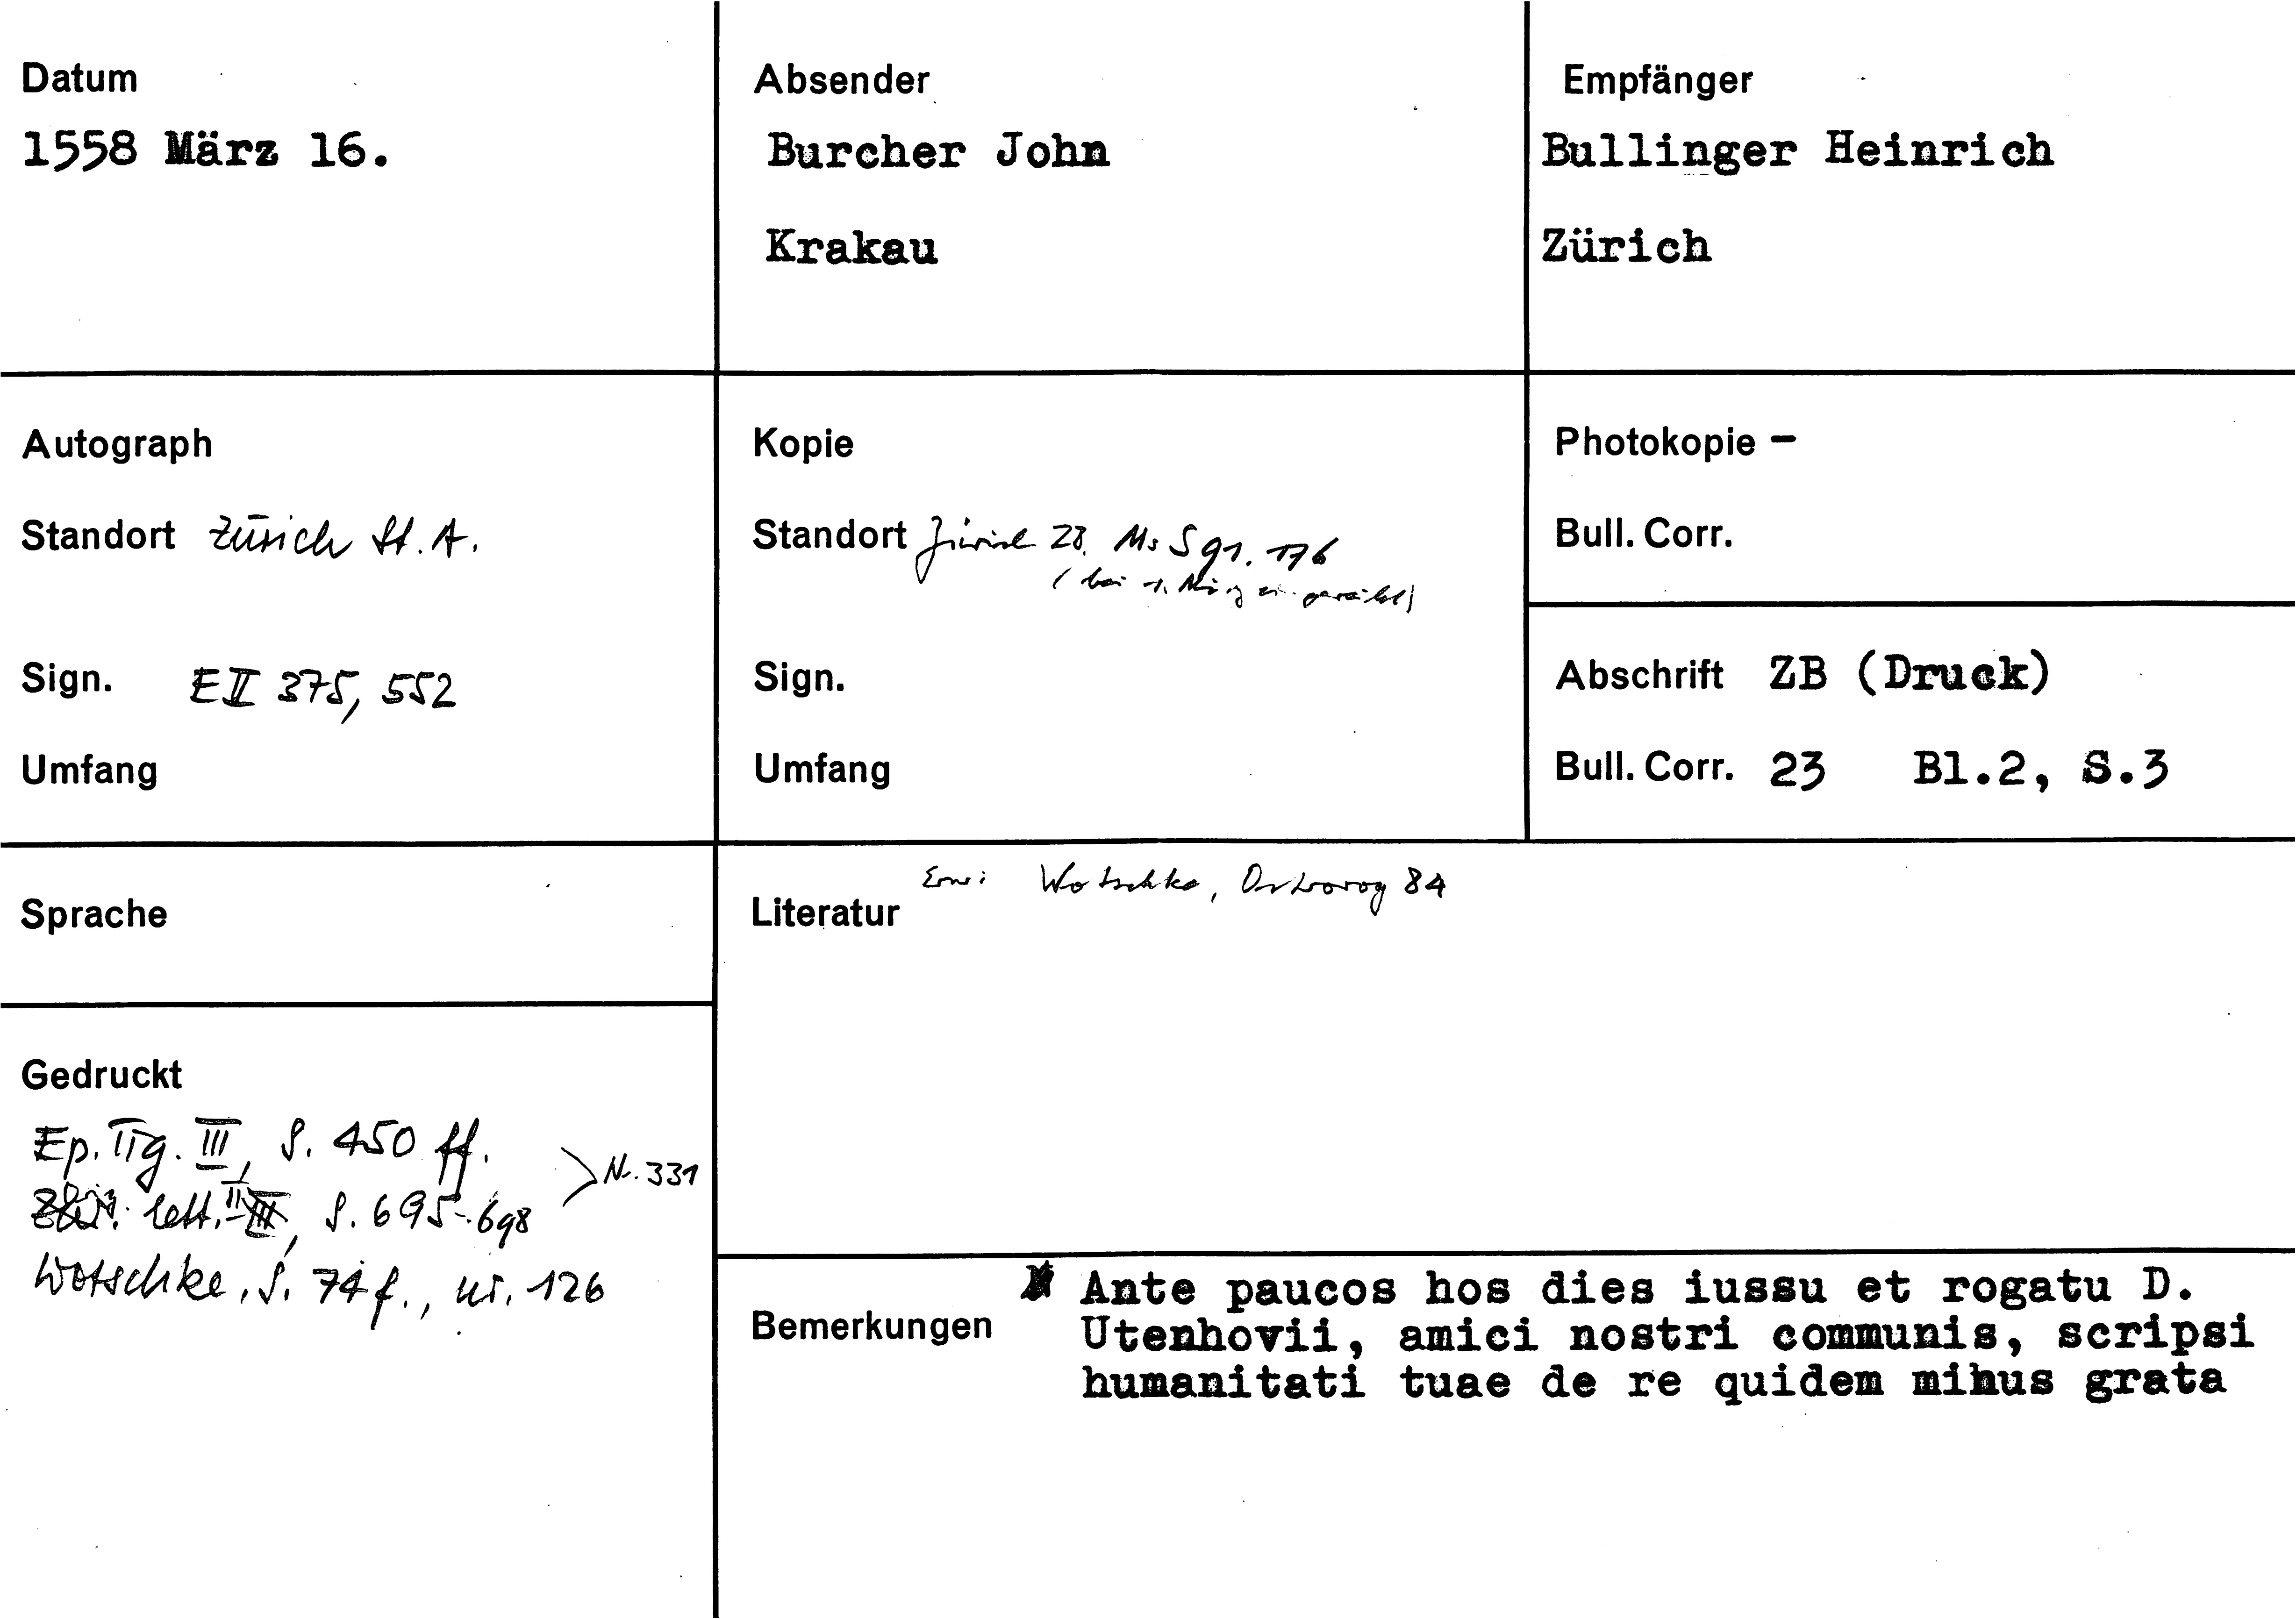 Datum
1558 März 16.
Absender
Burcher John
Krakau
Empfänger
Bullinger Heinrich
Zürich
Autograph
Standort Zürich St. A.
Sign. E II 375, 552
Umfang
Kopie
Standort Zürich ZB. Ms S 91. 176
(bei 1. März eingereiht)
Sign.
Umfang
Photokopie –
Bull. Corr.
Abschrift ZB (Druck)
Bull. Corr. 23 Bl.2, S.3
Sprache
Literatur Erw: Wotschke, Ostrorog 84
Gedruckt
Ep. Tig. III, S. 450 ff.
lett. II, S. 695-698
> Nr. 331
Wotschke, S. 74 f., nr. 126
Bemerkungen
Ante paucos hos dies iussu et rogatu D.
Utenhovii, amici nostri communis, scripsi
humanitati tuae de re quidem minus grata